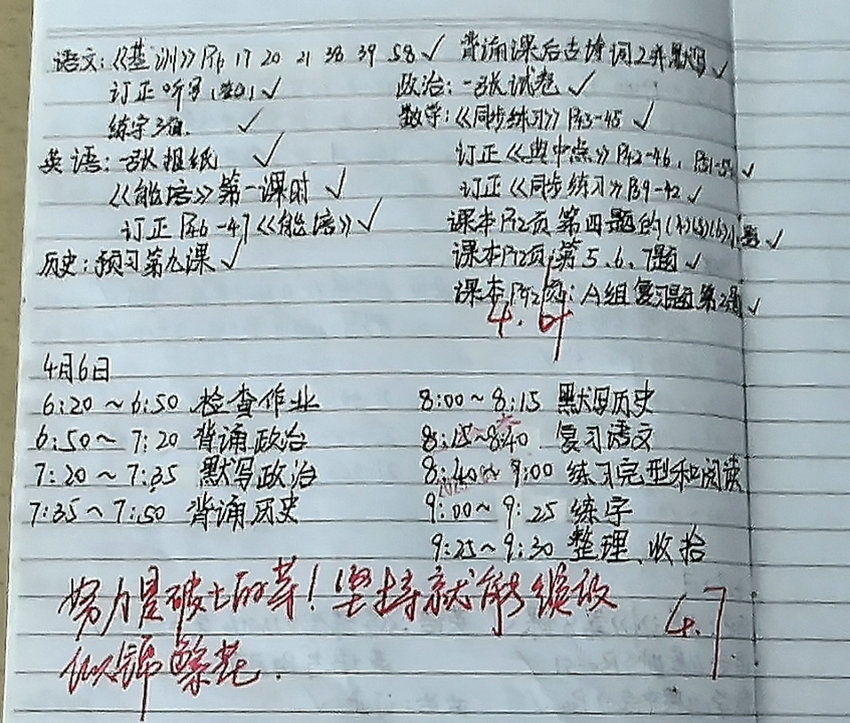 语文:《基训》P16 17 20 21 38 39 58 ✓
订正听写 ✓
练字3面 ✓
英语:一张报纸 ✓
《能培》第一课时 ✓
订正P46-47《能培》✓
历史:预习第九课 ✓
背诵课后古诗词2并默写 ✓
政治:一张试卷 ✓
数学:《同步练习》P43-45 ✓
订正《典中点》P42-46, P51-54 ✓
订正《同步练习》P39-42 ✓
课本P72页第四题的(4)(5)(6)小题 ✓
课本P72页第5、6、7题 ✓
课本P42页:A组复习题第2题 ✓
4.6
4月6日
6:20~6:50 检查作业
6:50~7:20 背诵政治
7:20~7:35 默写政治
7:35~7:50 背诵历史
8:00~8:15 默写历史
8:15~8:40 复习语文
8:40~9:00 练习完型和阅读
9:00~9:25 练字
9:25~9:30 整理、收拾
努力是破土的芽!坚持就能绽放
似锦繁花.
4.7